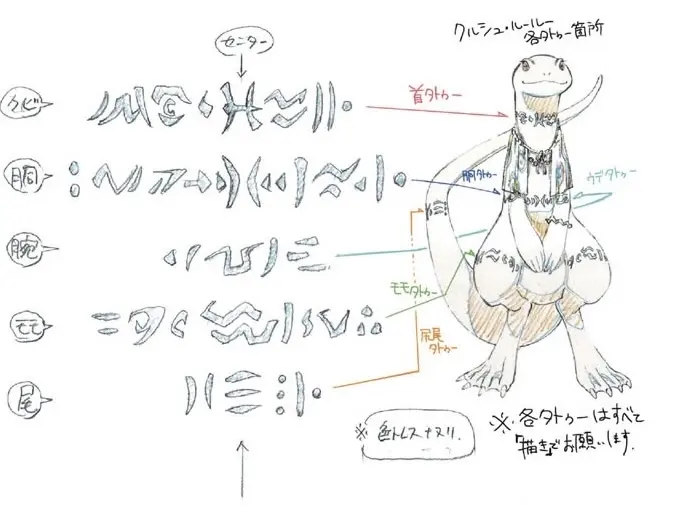 センター
クルシュ・ルールー
各タトゥー箇所
クビ
首タトゥー
胴
胴タトゥー
ウデタトゥー
腕
モモ
モモタトゥー
尻尾
タトゥー
尾
※色トレスナヌリ.
※各タトゥーはすべて
描きでお願いします.